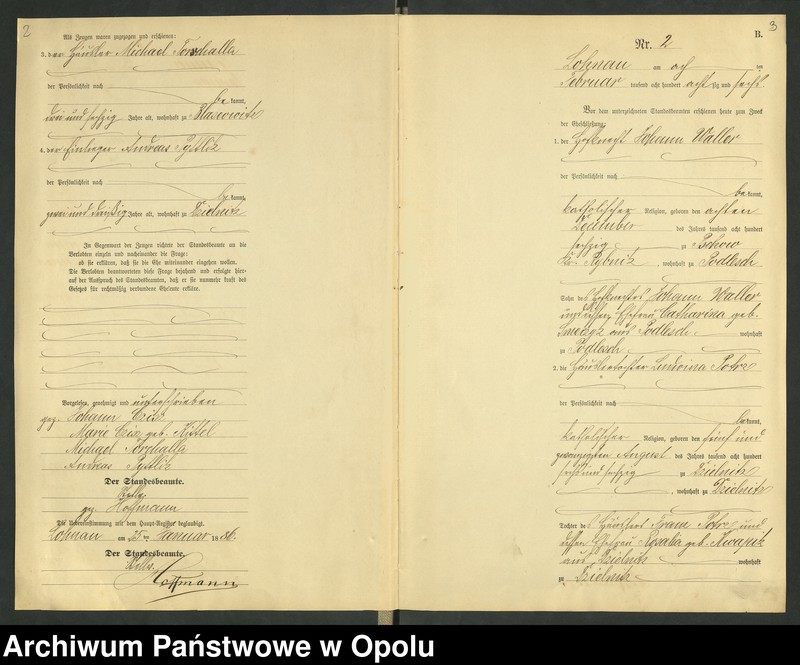 2
Als Zeugen waren zugezogen und erschienen:
3. der Häusler Michael
der Persönlichkeit nach
be kannt,
drei und sechzig Jahre alt, wohnhaft zu Blaseowitz
4. der Einlieger Andreas
der Persönlichkeit nach
be kannt,
zwei und dreißig Jahre alt, wohnhaft zu Dzielnitz
In Gegenwart der Zeugen richtete der Standesbeamte an die
Verlobten einzeln und nacheinander die Frage:
ob sie erklären, daß sie die Ehe miteinander eingehen wollen.
Die Verlobten beantworteten diese Frage bejahend und erfolgte hier-
auf der Ausspruch des Standesbeamten, daß er sie nunmehr kraft des
Gesetzes für rechtmäßig verbundene Eheleute erkläre.
Vorgelesen, genehmigt und unterschrieben
gez. Johann
Marie geb. Kittel
Michael
Andreas
Der Standesbeamte.
gez. Hoffmann
Die Uebereinstimmung mit dem Haupt-Register beglaubigt.
Lohnau am 25ten Januar 1886.
Der Standesbeamte.
Hoffmann
3
B.
Nr. 2
Lohnau am ach ten
Februar tausend acht hundert acht zig und sechs
Vor dem unterzeichneten Standesbeamten erschienen heute zum Zweck
der Eheschließung:
1. der Hofknecht Johann Waller
der Persönlichkeit nach
be kannt,
katholischer Religion, geboren den achten
Dezember des Jahres tausend acht hundert
sechzig zu Pschow
Kr. Rybnik, wohnhaft zu Podlesch
Sohn des Johann Waller
und dessen Ehefrau Catharina geb.
aus Podlesch. wohnhaft
zu Podlesch.
2. die Häuslertochter Ludwina Potrz
der Persönlichkeit nach
be kannt,
katholischer Religion, geboren den fünf und
zwanzigsten August des Jahres tausend acht hundert
sechs und sechzig zu Dzielnitz
, wohnhaft zu Dzielnitz
Tochter des Häuslers Franz Potrz und
dessen Ehefrau Rosalia geb.
aus Dzielnitz wohnhaft
zu Dzielnitz
Archiwum Państwowe w Opolu